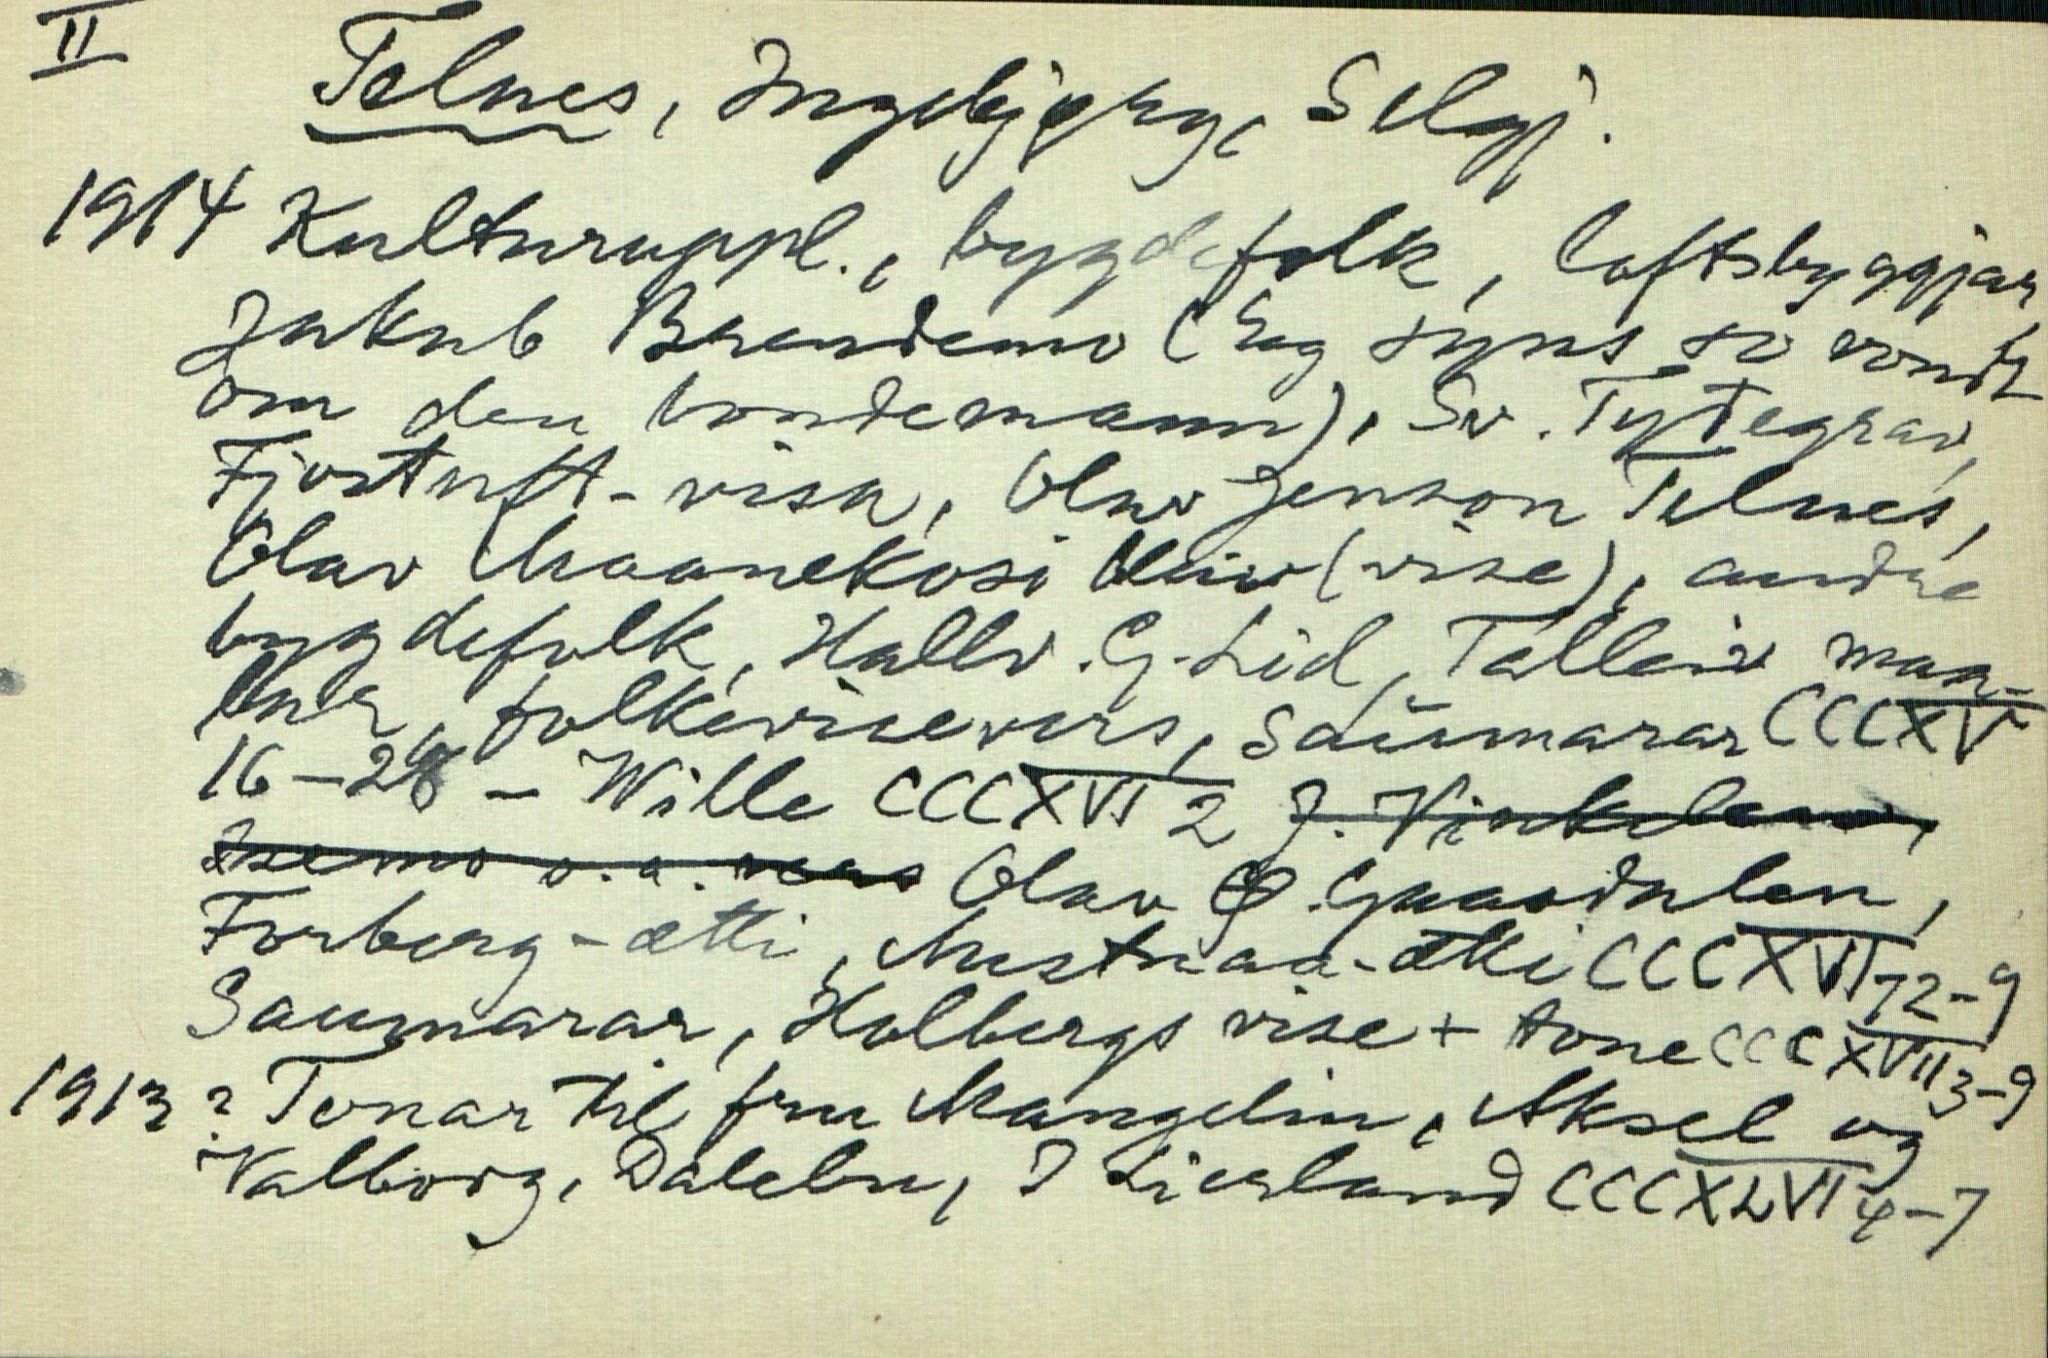 II
Telnes, Ingebjørg, Selgj.
1914 Kulturuppl., bygdefolk, loftsbyggjar
Jakub Brendemo (Eg synes so vondt
om den bondemann), Sv. Tytegrav,
Fjostuft-visa, Olav Jenson Telnes,
Olav Maanekosi (vise), andre
bygdefolk, Hallv. G. Lid, Talleiv maa-
lar, folkevisevers, Saumarar CCCXV
16-28 - Wille CCCXVI 2 J. Vinkelen,
Olav Ø. Gaardalen,
Forberg-ætti, Austnaa-ætti CCCXVI 72-9
Saumarar, Holbergs vise + tone CCCXVII 3-9
1913? Tonar til fru Mangelin, Aksel og
Valborg, Dalebu, J Lierland CCCXLVI 4-7